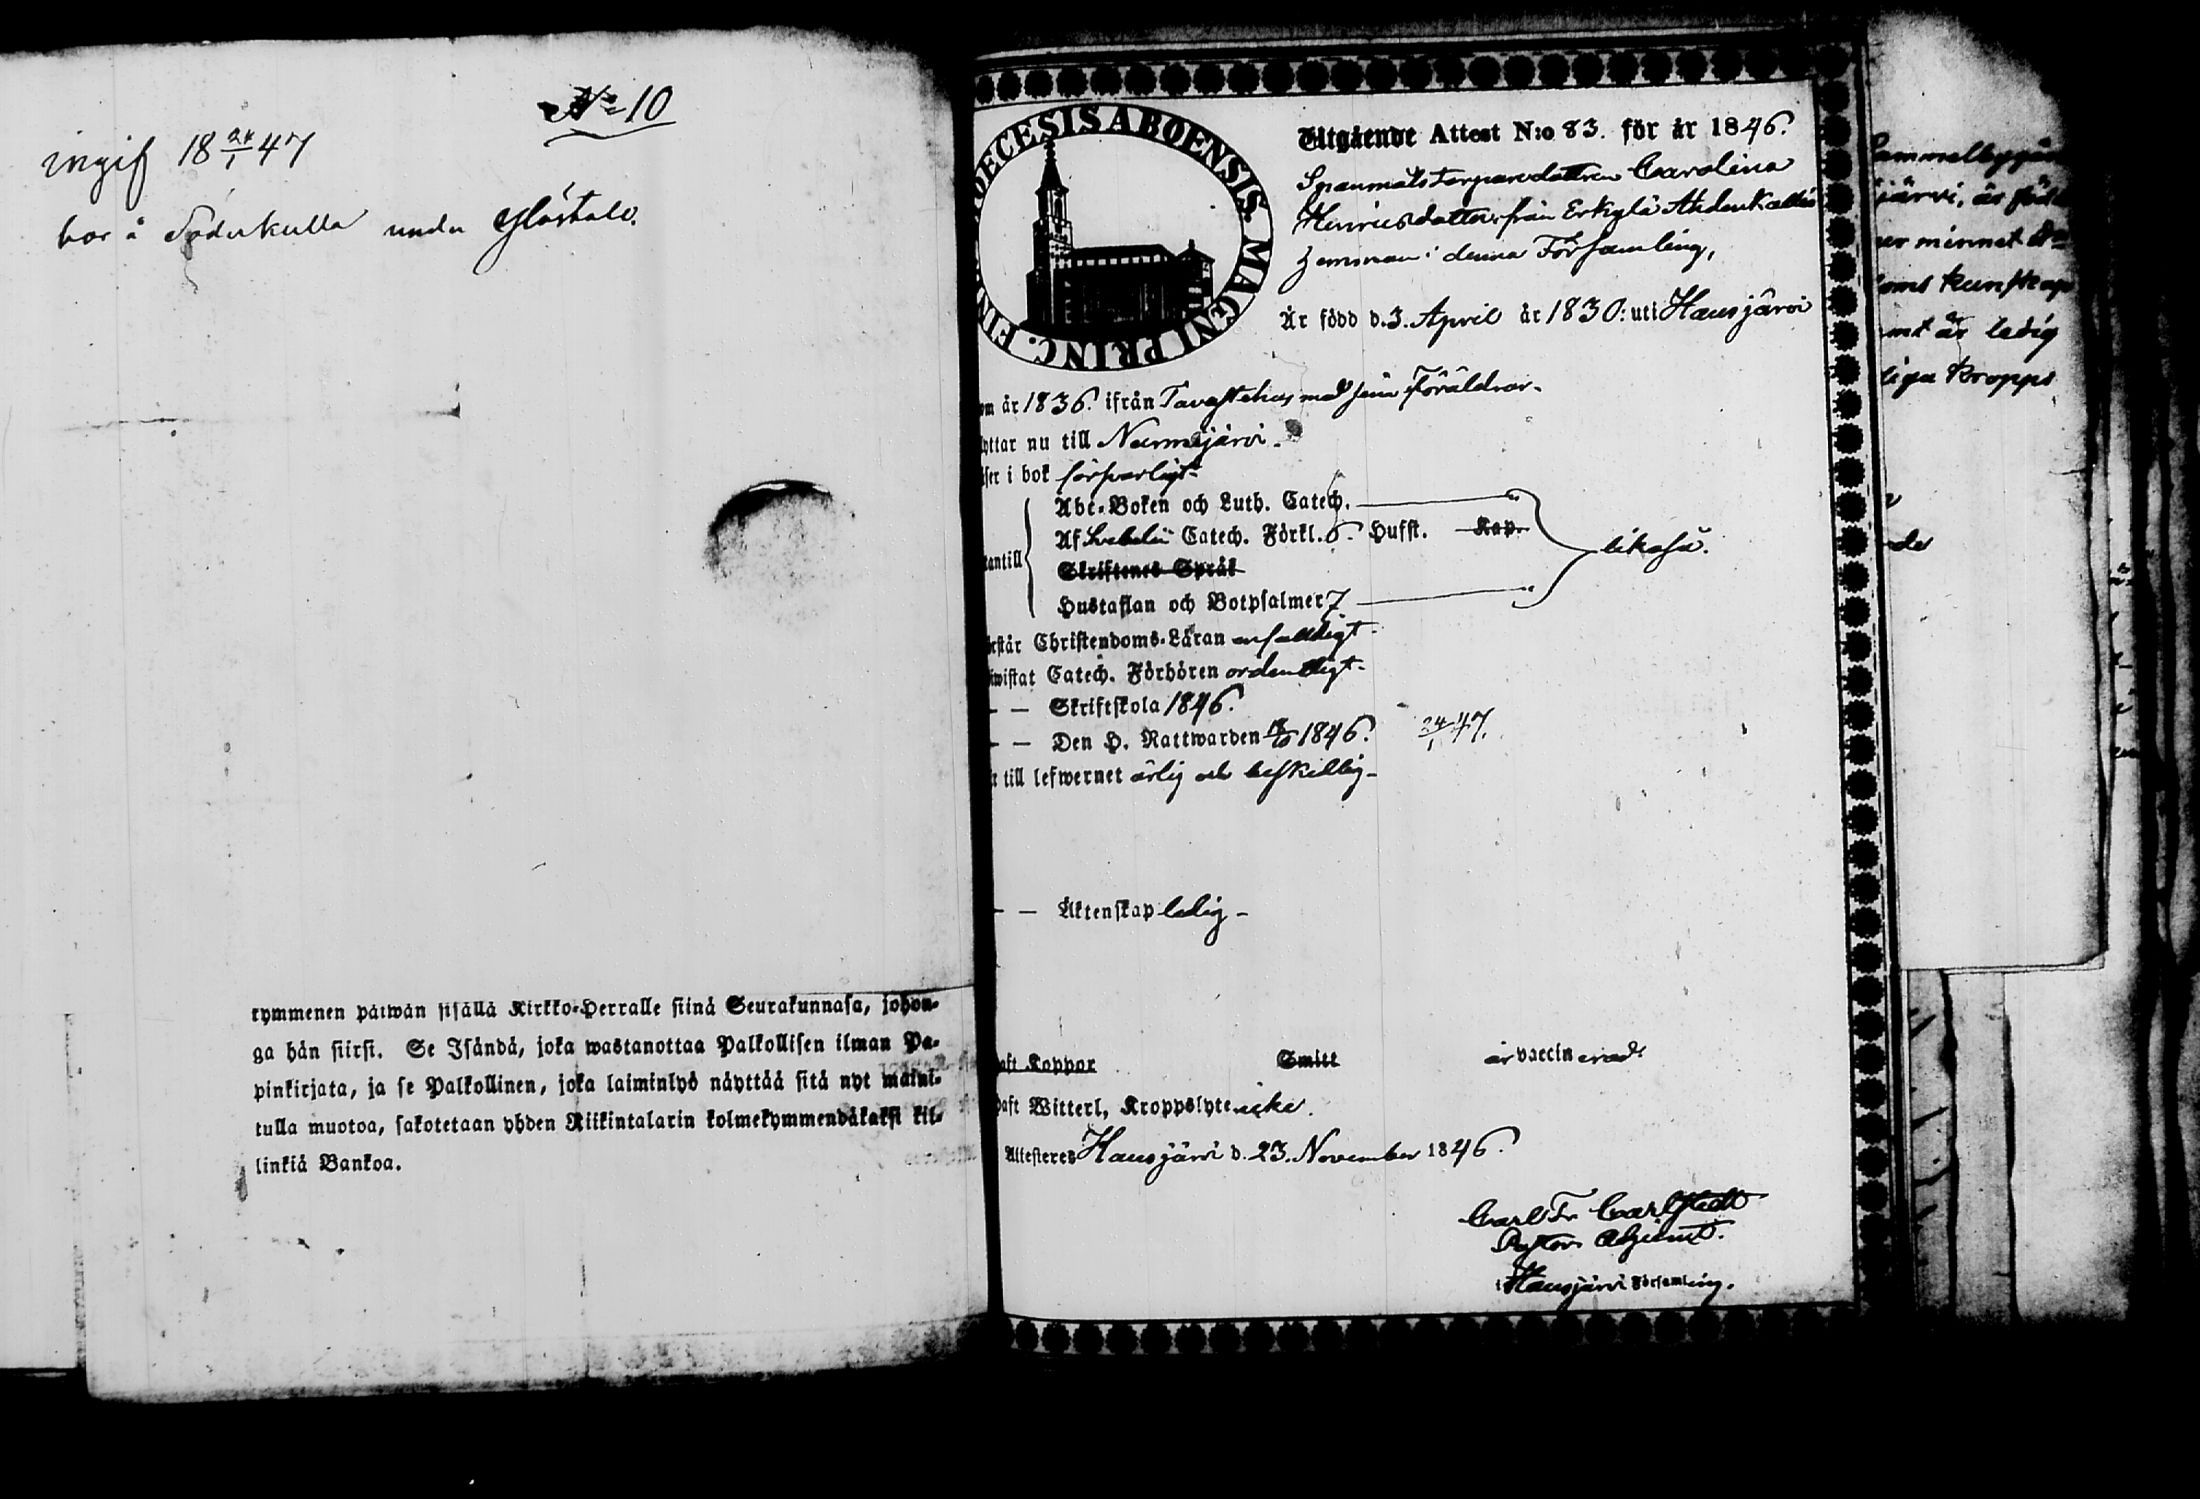 No 10
ingif 18 24/1 47
bor å Söderkulla under
rymmenen päiwän sisällä Kirkko-Herralle siinä Seurakunnasa, johon-
ga hän siirsi. Se Isändä, joka wastanottaa Palkollisen ilman Pa-
pinkirjata, ja se Palkollinen, joka laiminlyö näyttää sitä nyt maini-
tulla muotoa, sakotetaan yhden Riikintalarin kolmekymmendäkaksi kil-
linkiä Bankoa.
OECESIS ABOENSIS. MAGNI PRINC. FIN
Utgående Attest N:o 83. för år 1846.
Carolina
Henricsdotter från Erkylä
hemman i denna Församling,
Är född d. 3. April år 1830: uti Hausjärvi
om år 1836. ifrån Tavastehus med sina Föräldrar.
yttar nu till Nurmijärvi.
äser i bok försvarligt.
Abc-Boken och Luth. Catech. "
Af Svebelii Catech. Förkl. 6. Hufst. Kap.
likaså.
tantill
Skriftenes Språk
Hustaflan och Botpsalmer 7 "
örstår Christendoms-Läran enfaldigt.
iwistat Catech. Förhören ordentligt.
— — Skriftskola 1846.
— — Den H. Nattwarden 1846. 24/1 47.
r till lefwernet ärlig och beskedlig
— — Äktenskap ledig
aft Koppor Smitt är vaccinerad
haft Witterl, Kroppslyte icke.
Attesteres Hausjärvi d. 23. November 1846.
Carl Fr. Carlstedt
Pastors Adjunct.
i Hausjärvi Församling.
ammelbygg
järvi, är född
er minnet
oms kunskap
mt är ledig
liga kropps
de